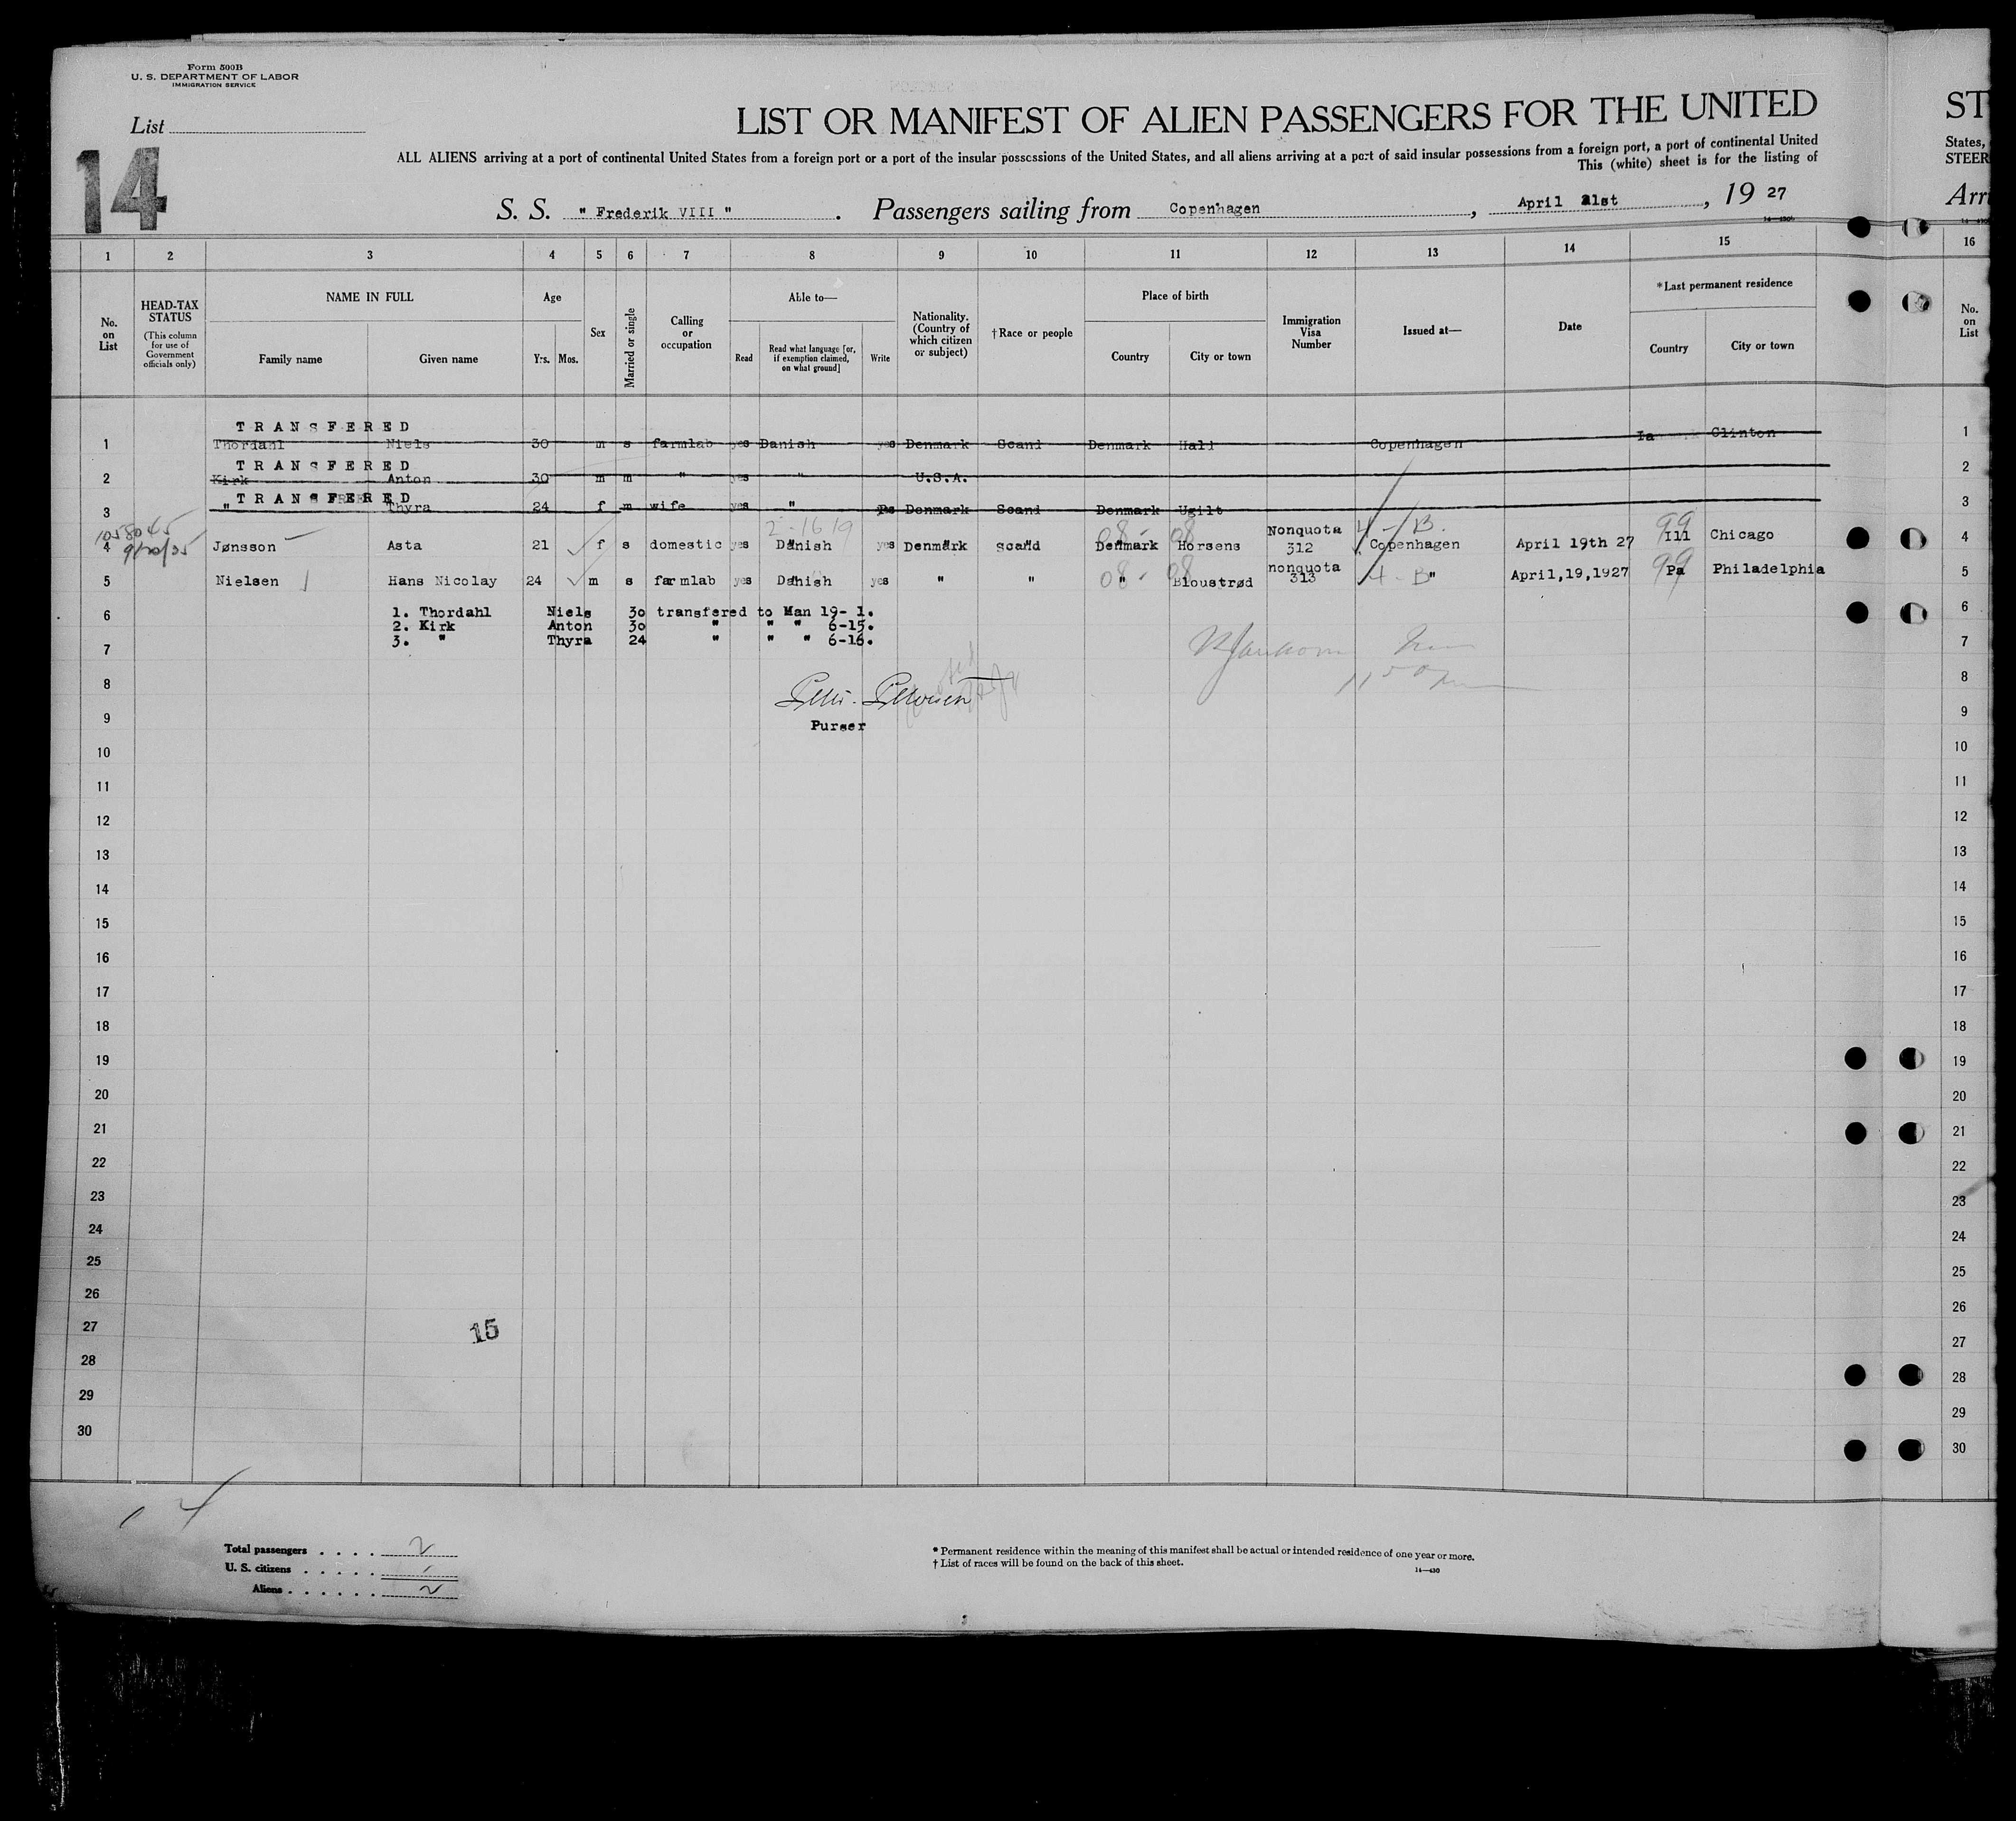 Form 500B
U. S. DEPARTMENT OF LABOR
IMMIGRATION SERVICE
List
14
LIST OR MANIFEST OF ALIEN PASSENGERS FOR THE UNITED
ALL ALIENS arriving at a port of continental United States from a foreign port or a port of the insular possessions of the United States, and all aliens arriving at a port of said insular possessions from a foreign port, a port of continental United
This (white) sheet is for the listing of
S. S. " Frederik VIII " . Passengers sailing from Copenhagen , April 21st , 19 27
ST
States,
STEER
Arri
1 2 3 4 5 6 7 8 9 10 11 12 13 14 15 16
No. on List
HEAD-TAX STATUS
(This column for use of Government officials only)
NAME IN FULL
Family name Given name
Age
Yrs. Mos.
Sex
Married or single
Calling or occupation
Able to—
Read
Read what language [or, if exemption claimed, on what ground]
Write
Nationality. (Country of which citizen or subject)
† Race or people
Place of birth
Country City or town
Immigration Visa Number
Issued at—
Date
*Last permanent residence
Country City or town
No. on List
TRANSFERED
1 Thordahl Niels 30 m s farmlab yes Danish yes Denmark Scand Denmark Hald Copenhagen Ia Clinton 1
TRANSFERED
2 Kirk Anton 30 m m " yes " U.S.A. 2
TRANSFERED
3 " Thyra 24 f m wife yes " Denmark Scand Denmark Ugilt 3
1058045
9/20/35
2-1619
08 - 08
4 - B.
99
4 Jønsson Asta 21 f s domestic yes Danish yes Denmark Scand Denmark Horsens Nonquota 312 Copenhagen April 19th 27 Ill Chicago 4
5 Nielsen Hans Nicolay 24 m s farmlab yes Danish yes " " " Bloustrød nonquota 313 " April,19,1927 Pa Philadelphia 5
08 - 08
4 - B
99
6 1. Thordahl Niels 30 transfered to Man 19- 1. 6
2. Kirk Anton 30 " " " 6-15.
7 3. " Thyra 24 " " " 6-16. 7
8 8
9 9
Purser
10 10
11 11
12 12
13 13
14 14
15 15
16 16
17 17
18 18
19 19
20 20
21 21
22 22
23 23
24 24
25 25
26 26
27 15 27
28 28
29 29
30 30
14
Total passengers . . . . 2
U. S. citizens . . . . .
Aliens . . . . . . 2
* Permanent residence within the meaning of this manifest shall be actual or intended residence of one year or more.
† List of races will be found on the back of this sheet.
14—430